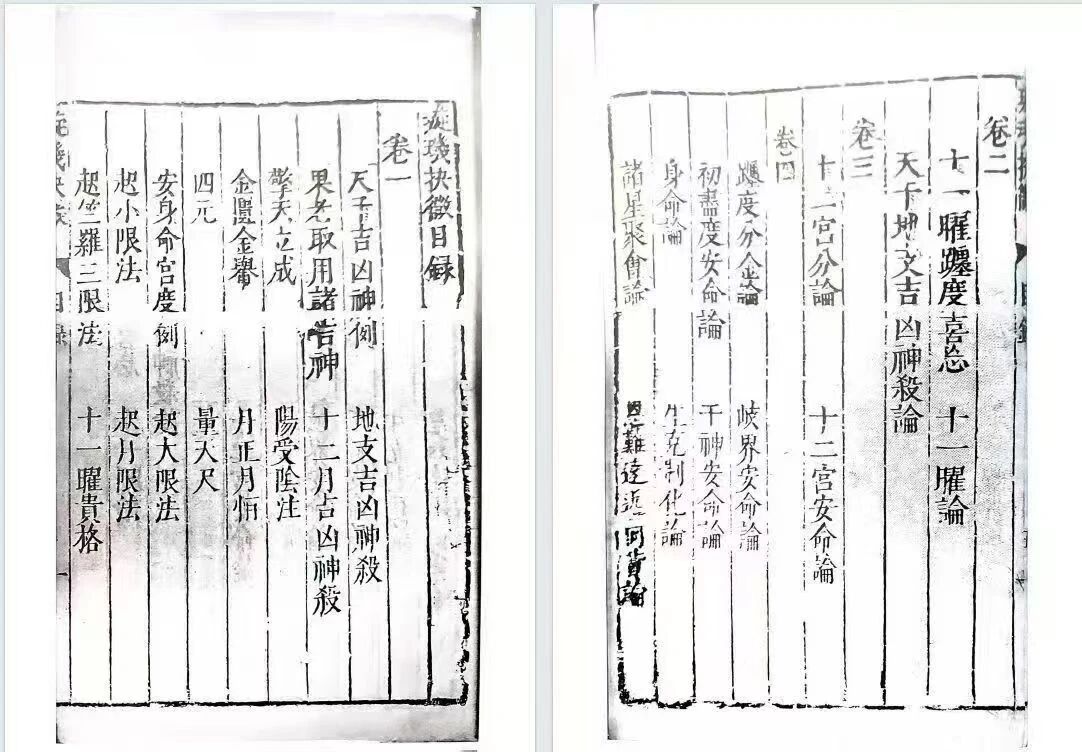 璇璣抉微目録
卷一
天干吉凶神例 地支吉凶神殺
果老取用諸吉神 十二月吉凶神殺
擎天立成 陽受陰注
金 金轝
四元 量天尺
安身命宮度例 起大限法
起小限法 起月限法
起竺羅三限法 十一曜貴格
璇璣抉微 目録
卷二
十一曜躔度喜忌 十一曜論
天干地支吉凶神殺論
卷三
十二宮分論 十二宮安命論
卷四
躔度分金論 歧界安命論
初盡度安命論 干神安命論
身命論 生克制化論
諸星聚會論 恩難遠近 論